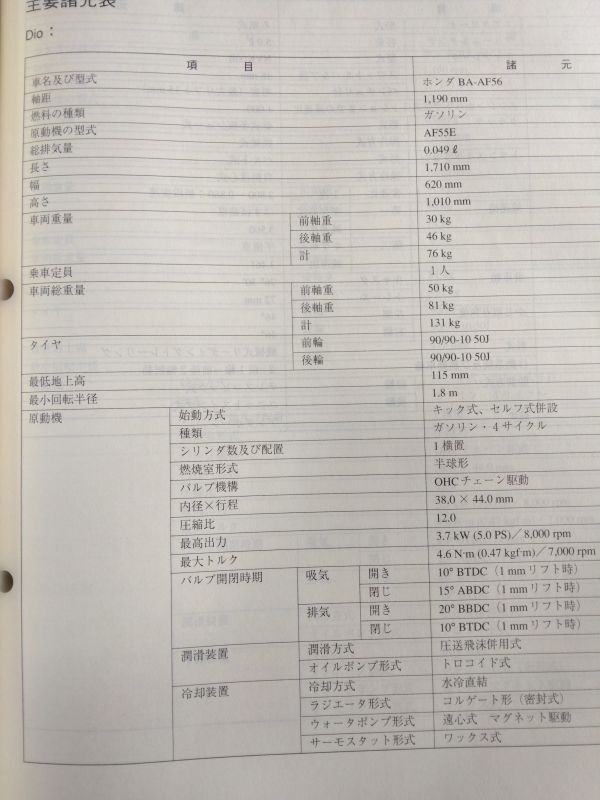 主要諸元表
Dio：
項 目 諸 元
車名及び型式 ホンダ BA-AF56
軸距 1,190 mm
燃料の種類 ガソリン
原動機の型式 AF55E
総排気量 0.049 ℓ
長さ 1,710 mm
幅 620 mm
高さ 1,010 mm
車両重量 前軸重 30 kg
後軸重 46 kg
計 76 kg
乗車定員 1 人
車両総重量 前軸重 50 kg
後軸重 81 kg
計 131 kg
タイヤ 前輪 90/90-10 50J
後輪 90/90-10 50J
最低地上高 115 mm
最小回転半径 1.8 m
原動機 始動方式 キック式、セルフ式併設
種類 ガソリン・4 サイクル
シリンダ数及び配置 1 横置
燃焼室形式 半球形
バルブ機構 OHC チェーン駆動
内径×行程 38.0 × 44.0 mm
圧縮比 12.0
最高出力 3.7 kW (5.0 PS)／8,000 rpm
最大トルク 4.6 N·m (0.47 kgf·m)／7,000 rpm
バルブ開閉時期 吸気 開き 10° BTDC（1 mm リフト時）
閉じ 15° ABDC（1 mm リフト時）
排気 開き 20° BBDC（1 mm リフト時）
閉じ 10° BTDC（1 mm リフト時）
潤滑装置 潤滑方式 圧送飛沫併用式
オイルポンプ形式 トロコイド式
冷却装置 冷却方式 水冷直結
ラジエータ形式 コルゲート形（密封式）
ウォータポンプ形式 遠心式 マグネット駆動
サーモスタット形式 ワックス式